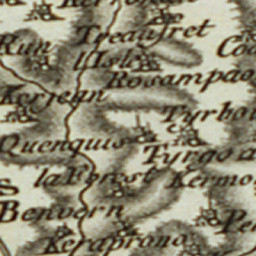 Treaufret
Run
l'Isle
Rosampao
Kerjean
Tyrbo
Quenquis
Tyrgo
la Forest
Kermo
Benvern
Keraprono